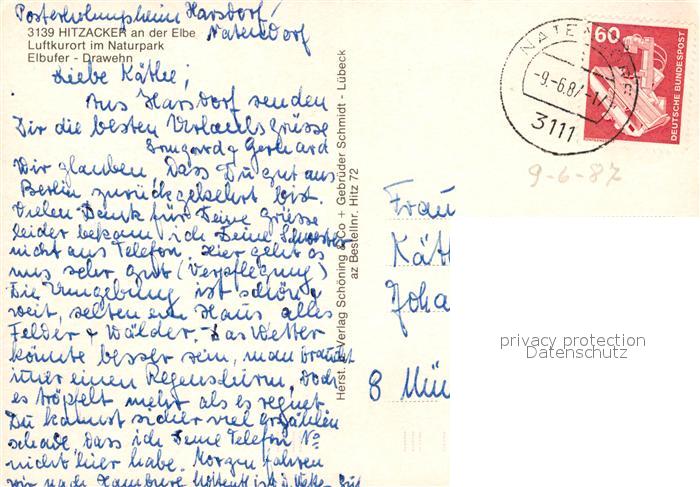 Posterholungsheim Harsdorf/
Natendorf
3139 HITZACKER an der Elbe
Luftkurort im Naturpark
Elbufer - Drawehn
Liebe Käthe;
Aus Harsdorf senden
Dir die besten Urlaubsgrüsse
Irmgard & Gerhard
Wir glauben, dass Du gut aus
Berlin zurückgekehrt bist.
Vielen Dank für Deine Grüsse
leider bekam ich Deine Schwester
nicht ans Telefon. Hier geht es
uns sehr gut (Verpflegung)
Die Umgebung ist schön
weit, selten ein Haus alles
Felder + Wälder. Das Wetter
könnte besser sein, man braucht
imer einen Regenschirm, doch
es tröpfelt mehr als es regnet
Du kannst sicher viel erzählen
schade, dass ich Deine Telefon No
nicht hier habe. Morgen fahren
wir nach Hamburg
Herst. u. Verlag Schöning & Co + Gebrüder Schmidt - Lübeck
az Bestellnr. Hitz 72
NATENDORF
-9.-6.87-17
3111
60
DEUTSCHE BUNDESPOST
9-6-87
Frau
Käth
Joha
8 Mün
privacy protection
Datenschutz